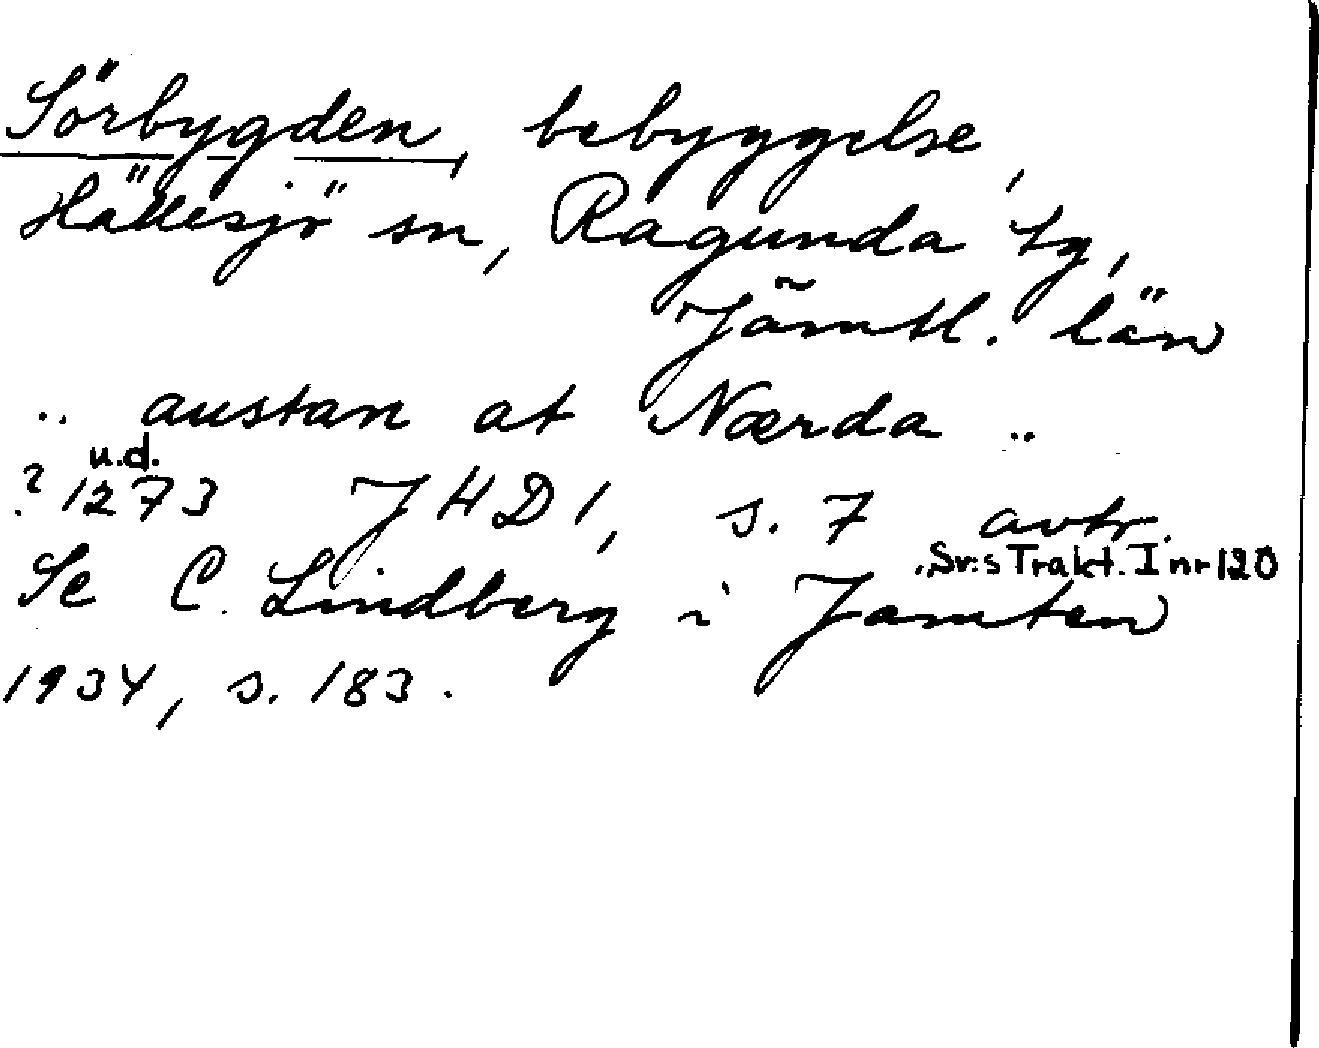 Sörbygden, bebyggelse,
Hällesjö sn, Ragunda tg,
Jämtl. län
.. austan at Nærda ..
u.d.
? 1273 JHD 1, s. 7 avtr.
, Sv:s Trakt. I nr 120
Se C. Lindberg i Jämten
1934, s. 183.